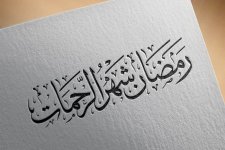 رمضان شهر الرحمات